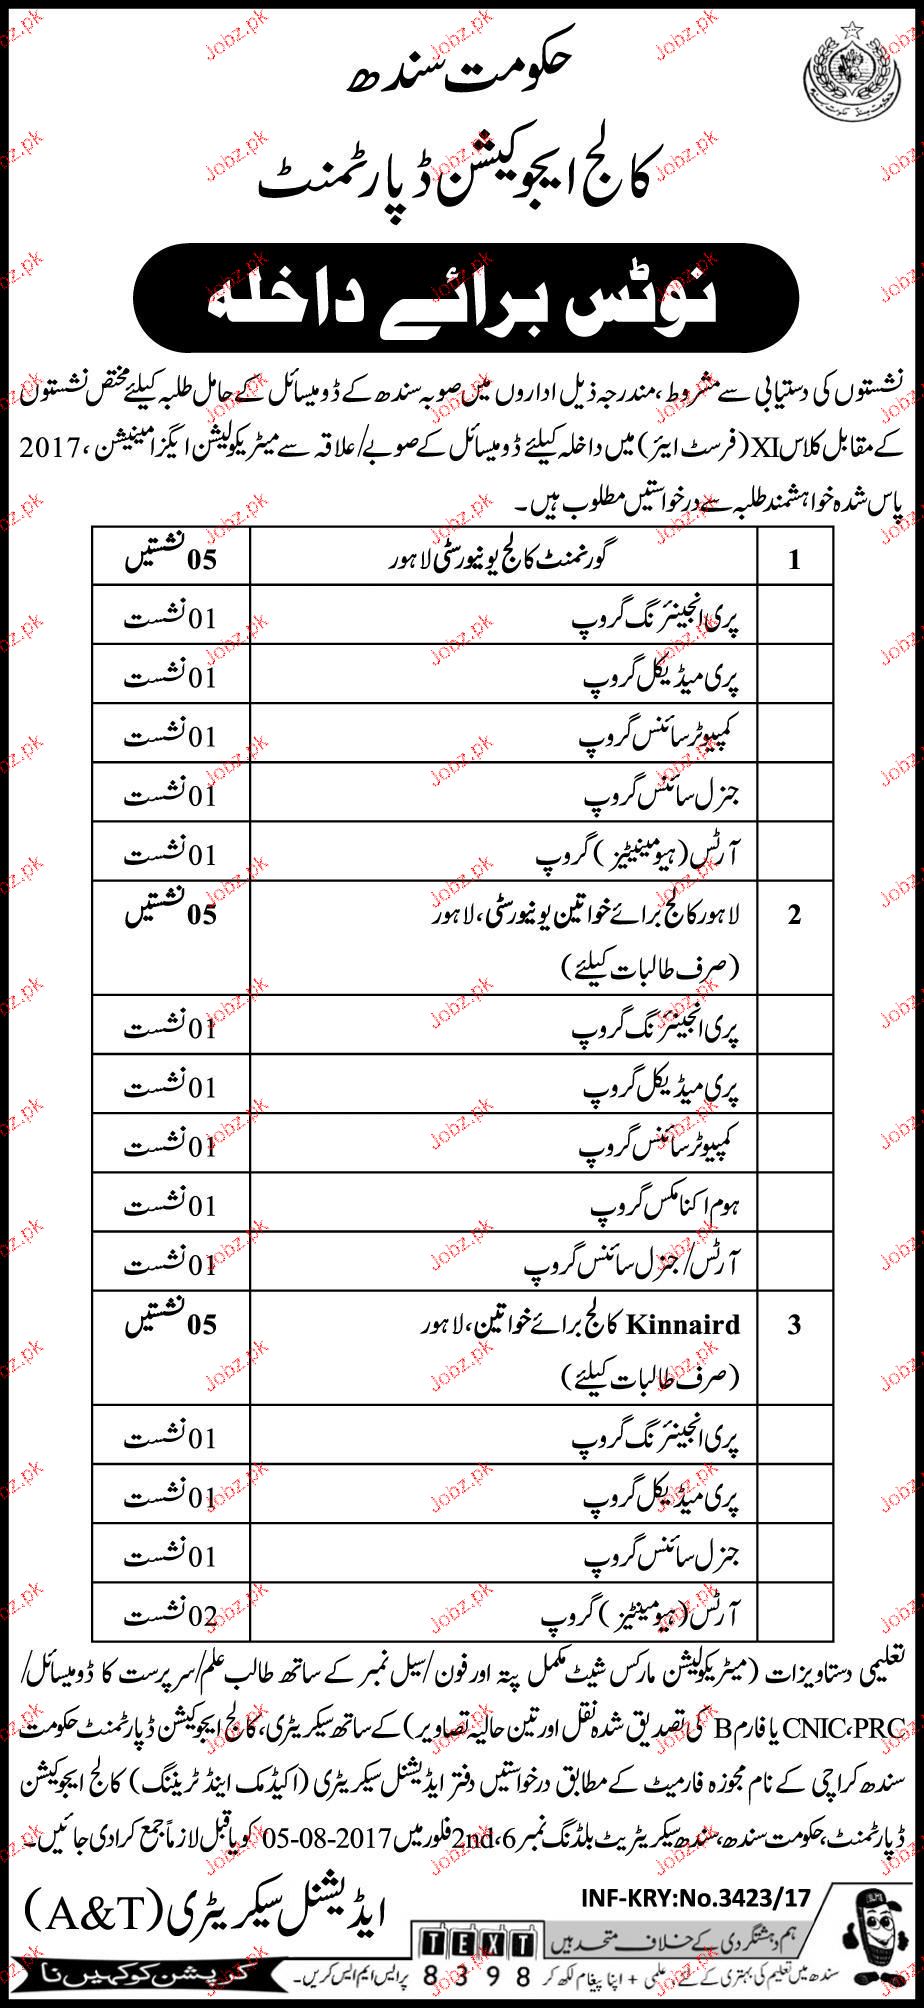 حکومت سندھ
کالج ایجوکیشن ڈپارٹمنٹ
نوٹس برائے داخلہ
نشستوں کی دستیابی سے مشروط، مندرجہ ذیل اداروں میں صوبہ سندھ کے ڈومیسائل کے حامل طلبہ کیلئے مختص نشستوں
کے مقابل کلاس XI (فرسٹ ایئر) میں داخلہ کیلئے ڈومیسائل کے صوبے/علاقہ سے میٹریکولیشن ایگزامینیشن، 2017
پاس شدہ خواہشمند طلبہ سے درخواستیں مطلوب ہیں۔
1 گورنمنٹ کالج یونیورسٹی لاہور 05 نشستیں
پری انجینئرنگ گروپ 01 نشست
پری میڈیکل گروپ 01 نشست
کمپیوٹر سائنس گروپ 01 نشست
جنرل سائنس گروپ 01 نشست
آرٹس (ہیومینیٹیز) گروپ 01 نشست
2 لاہور کالج برائے خواتین یونیورسٹی، لاہور 05 نشستیں
(صرف طالبات کیلئے)
پری انجینئرنگ گروپ 01 نشست
پری میڈیکل گروپ 01 نشست
کمپیوٹر سائنس گروپ 01 نشست
ہوم اکنامکس گروپ 01 نشست
آرٹس/جنرل سائنس گروپ 01 نشست
3 Kinnaird کالج برائے خواتین، لاہور 05 نشستیں
(صرف طالبات کیلئے)
پری انجینئرنگ گروپ 01 نشست
پری میڈیکل گروپ 01 نشست
جنرل سائنس گروپ 01 نشست
آرٹس (ہیومینٹیز) گروپ 02 نشست
تعلیمی دستاویزات (میٹریکولیشن مارکس شیٹ مکمل پتہ اور فون/سیل نمبر کے ساتھ طالب علم/سرپرست کا ڈومیسائل/
CNIC،PRC یا فارم B کی تصدیق شدہ نقل اور تین حالیہ تصاویر) کے ساتھ سیکریٹری، کالج ایجوکیشن ڈپارٹمنٹ حکومت
سندھ کراچی کے نام مجوزہ فارمیٹ کے مطابق درخواستیں دفتر ایڈیشنل سیکریٹری (اکیڈمک اینڈ ٹریننگ) کالج ایجوکیشن
ڈپارٹمنٹ، حکومت سندھ، سندھ سیکریٹریٹ بلڈنگ نمبر 6، 2nd فلور میں 2017-08-05 کو یا قبل لازماً جمع کرادی جائیں۔
ایڈیشنل سیکریٹری (A&T)
INF-KRY:No.3423/17
ہم دہشتگردی کے خلاف متحد ہیں
TEXT
سندھ میں تعلیم کی بہتری کے لئے علمی + اپنا پیغام لکھ کر 8398 پر ایس ایم ایس کریں۔
کرپشن کو کہیں نا
Jobz.pk